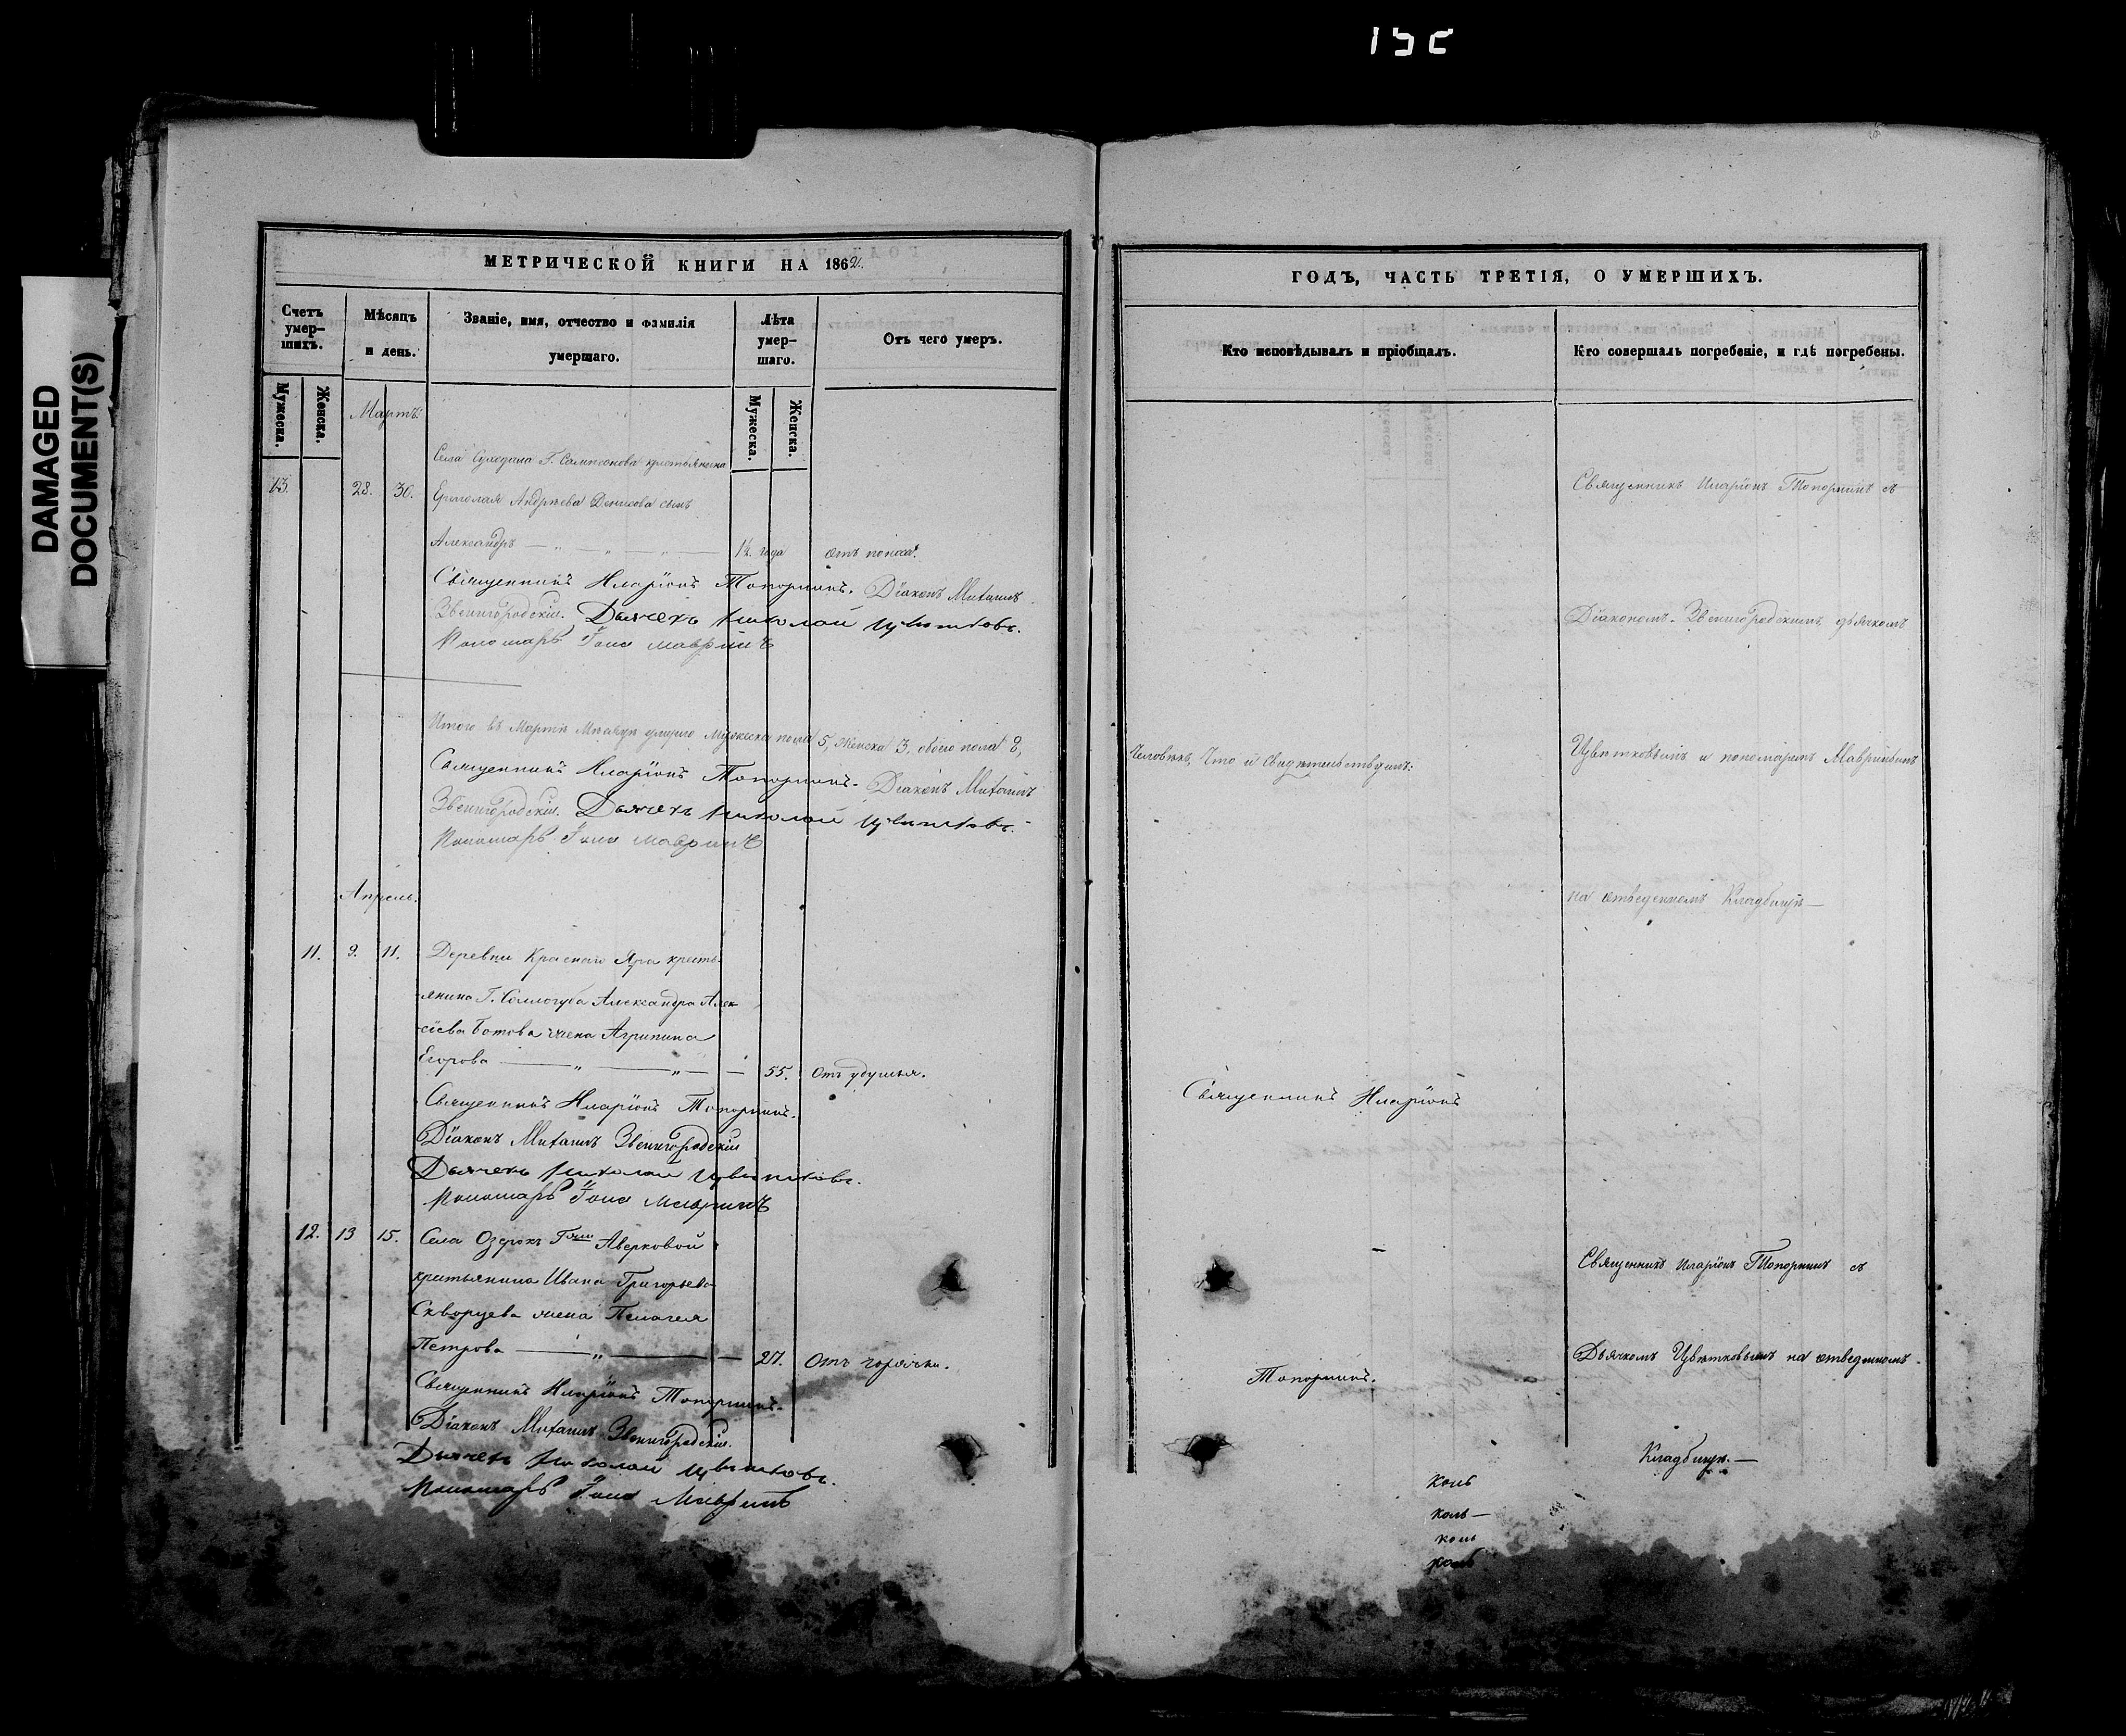 DAMAGED
DOCUMENT(S)
МЕТРИЧЕСКОЙ КНИГИ НА 1862.
Счетъ умер-
шихъ.
Мѣсяцъ
и день.
Званіе, имя, отчество и фамилія
умершаго.
Лѣта
умер-
шаго.
Отъ чего умеръ.
Мужеска.
Женска.
Мужеска.
Женска.
Мартъ.
Села Суходола Г. Сампсонова крестьянина
13. 28. 30. Ермолая Андреева Денисова сынъ
Александръ — „ — „ — „ — 1½ года отъ поноса.
Священникъ Иларіонъ Топорнинъ. Діаконъ Михаилъ
Звенигородскій. Дьячекъ Николай Цвѣтковъ.
Пономарь Іона Мавринъ
Итого въ Мартѣ Мѣсяцѣ умерло Мужеска пола 5, женска 3, обоего пола 8,
Священникъ Иларіонъ Топорнинъ. Діаконъ Михаилъ
Звенигородскій. Дьячекъ Николай Цвѣтковъ.
Пономарь Іона Мавринъ
Апрель.
11. 9. 11. Деревни Краснаго Яра кресть-
янина Г. Соллогуба Александра Алек-
сіева Ботова жена Агрипина
Егорова — „ — „ — 55. Отъ удушья.
Священникъ Иларіонъ Топорнинъ.
Діаконъ Михаилъ Звенигородскій
Дьячекъ Николай Цвѣтковъ.
Пономарь Іона Мавринъ
12. 13 15. Села Озерокъ Гжи Аверковой
крестьянина Ивана Григорьева
Скворцева жена Пелагея
Петрова — „ — 27. Отъ горячки.
Священникъ Иларіонъ Топорнинъ.
Діаконъ Михаилъ Звенигородскій.
Дьячекъ Николай Цвѣтковъ.
Пономарь Іона Мавринъ
ГОДЪ, ЧАСТЬ ТРЕТІЯ, О УМЕРШИХЪ.
Кто исповѣдывалъ и пріобщалъ.
Кто совершалъ погребеніе, и гдѣ погребены.
Священникъ Иларіонъ Топорнинъ съ
Діакономъ Звенигородскимъ дьячкомъ
Человѣкъ, Что и свидѣтельствуемъ:
Цвѣтковымъ и пономаремъ Мавринымъ
на отведенномъ Кладбищѣ—
Священникъ Иларіонъ
Священникъ Иларіонъ Топорнинъ съ
Дьячкомъ Цвѣтковымъ на отведенномъ
Топорнинъ.
Кладбищѣ.—